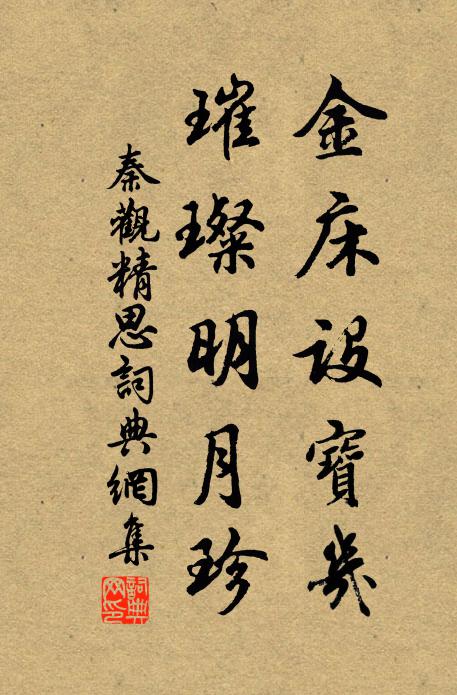 金床設寶幾
璀璨明月珍
秦觀精思詞典網集
詞典網印